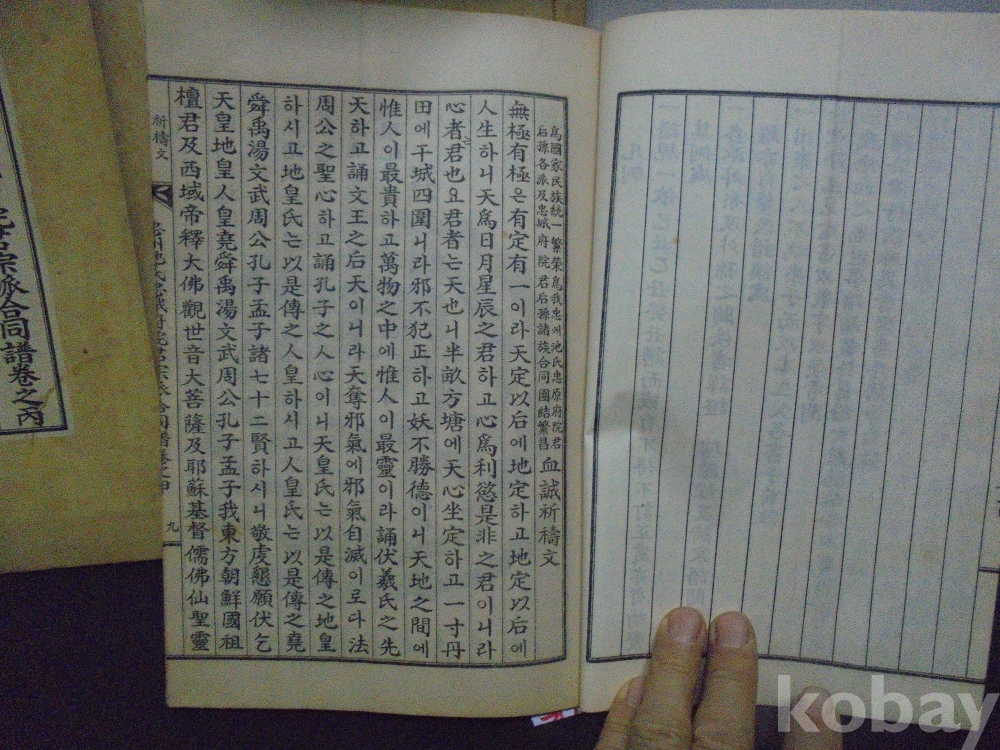 爲國家民族統一繁榮爲我忠州池氏忠原府院君
后孫各派及忠城府院君后孫諸族合同團結繁昌
血誠祈禱文
無極有極은有定有一이라天定以后에地定하고地定以后에
人生하니天爲日月星辰之君하고心爲利慾是非之君이니라
心者之君也요君者는天也니半畝方塘에天心坐定하고一寸丹
田에干城四圍니라邪不犯正하고妖不勝德이니天地之間에
惟人이最貴하고萬物之中에惟人이最靈이라誦伏羲氏之先
天하고誦文王之后天이니라天奪邪氣에邪氣自滅이로다法
周公之聖心하고誦孔子之人心이니天皇氏는以是傳之地皇
하시고地皇氏는以是傳之人皇하시고人皇氏는以是傳之堯
舜禹湯文武周公孔子孟子諸七十二賢하시니敬虔懇願伏乞
天皇地皇人皇堯舜禹湯文武周公孔子孟子我東方朝鮮國祖
檀君及西域帝釋大佛觀世音大菩薩及耶蘇基督儒佛仙聖靈
祈禱文
九
宗派合同譜卷之丙
kobay